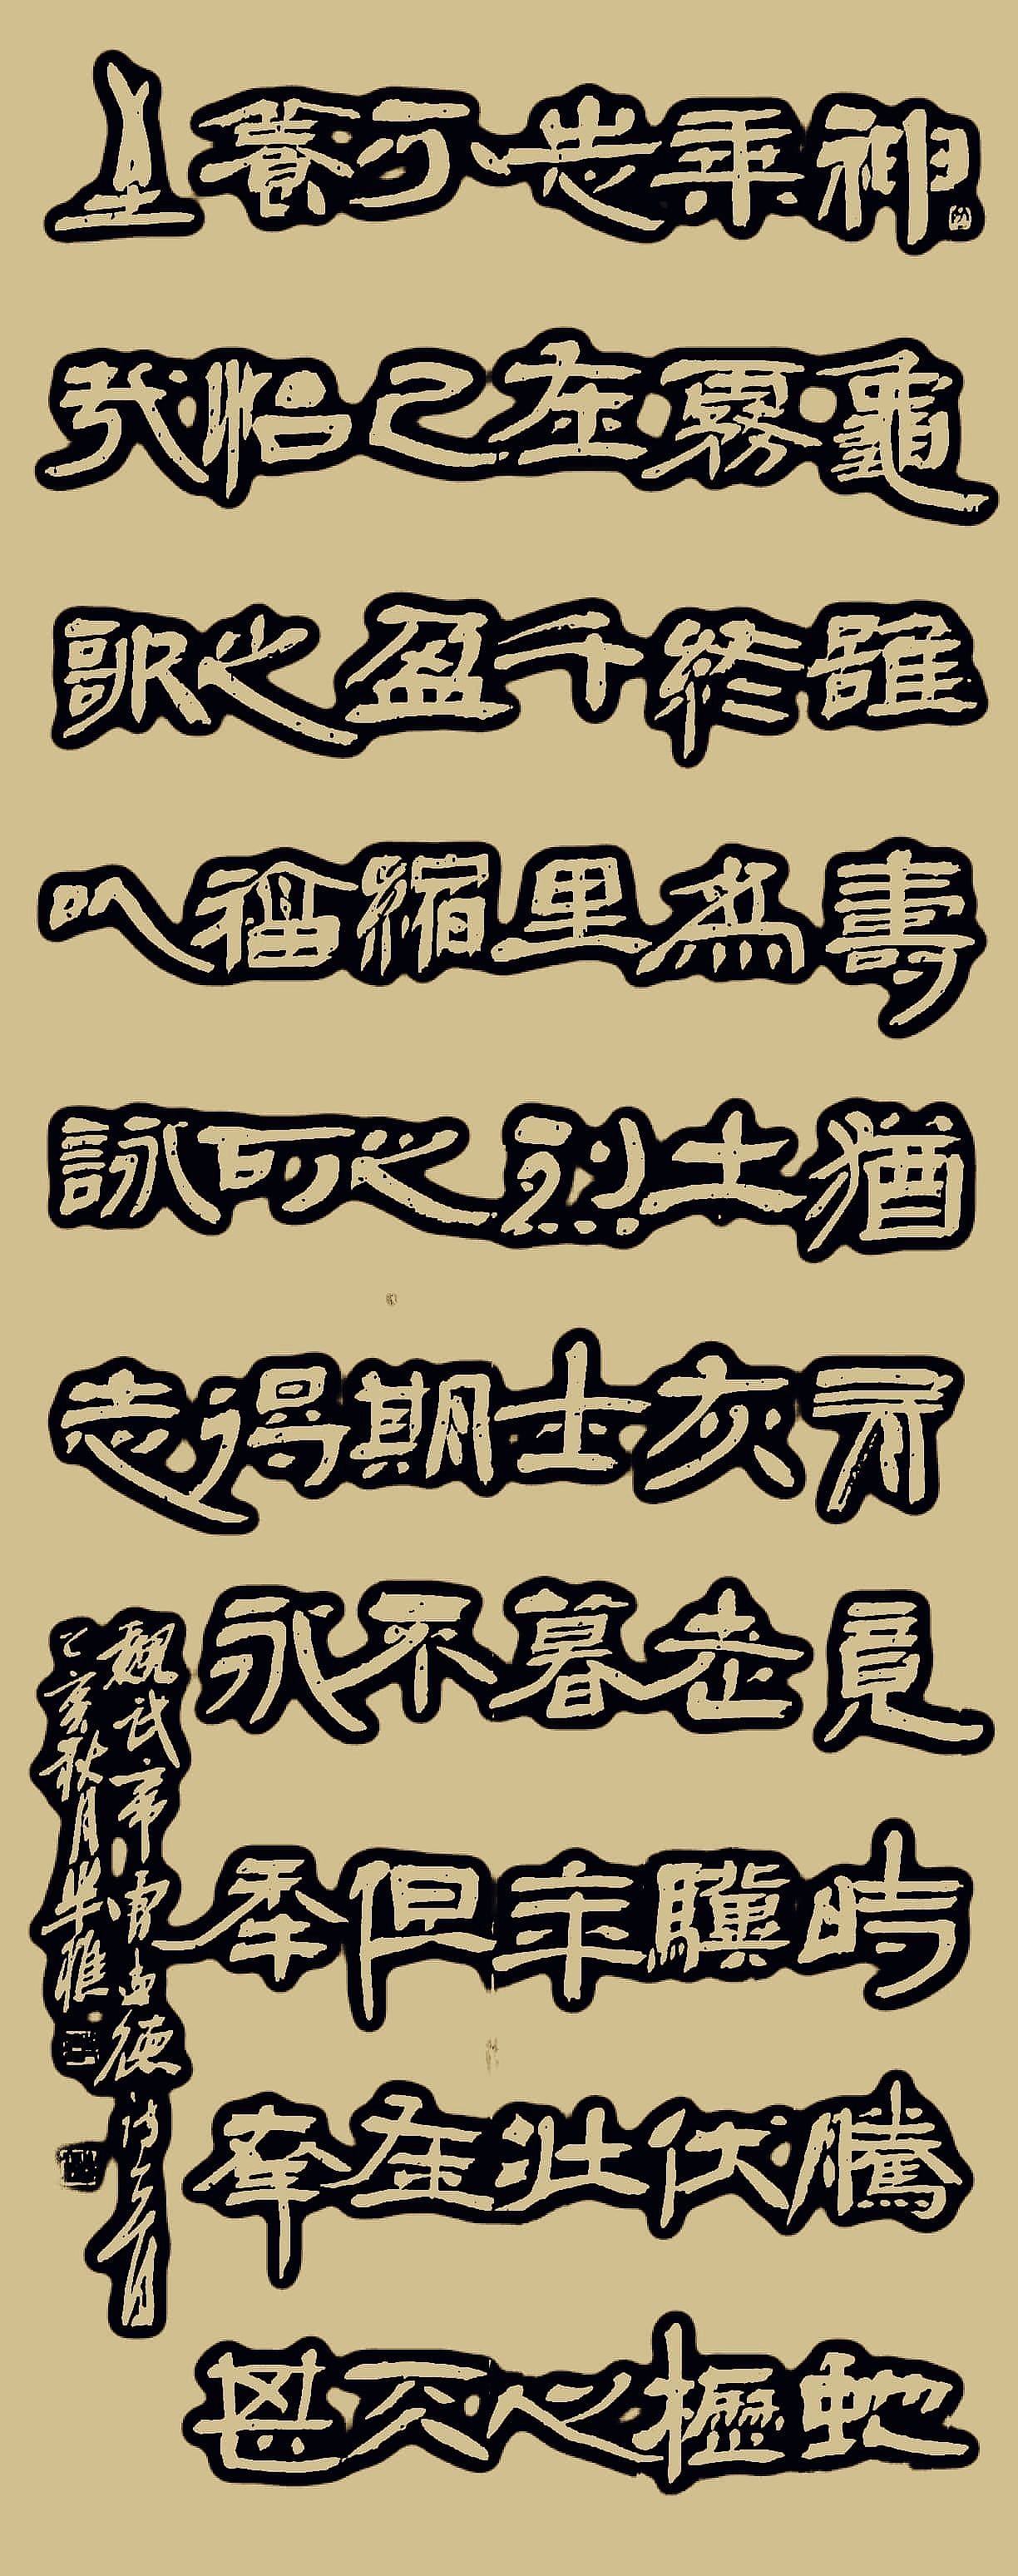 神龜雖壽猶有竟時騰蛇
乘霧終為土灰老驥伏櫪
志在千里烈士暮年壯心
不已盈縮之期不但在天
養怡之福可得永年幸甚
至哉歌以詠志
魏武帝曹孟德詩
乙亥秋月半雅